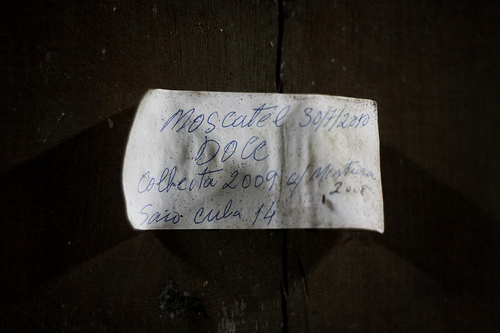 Moscatel 30/7/2010
Doce
Colheita 2009 c/ Mistura
2008
Saio cuba 14